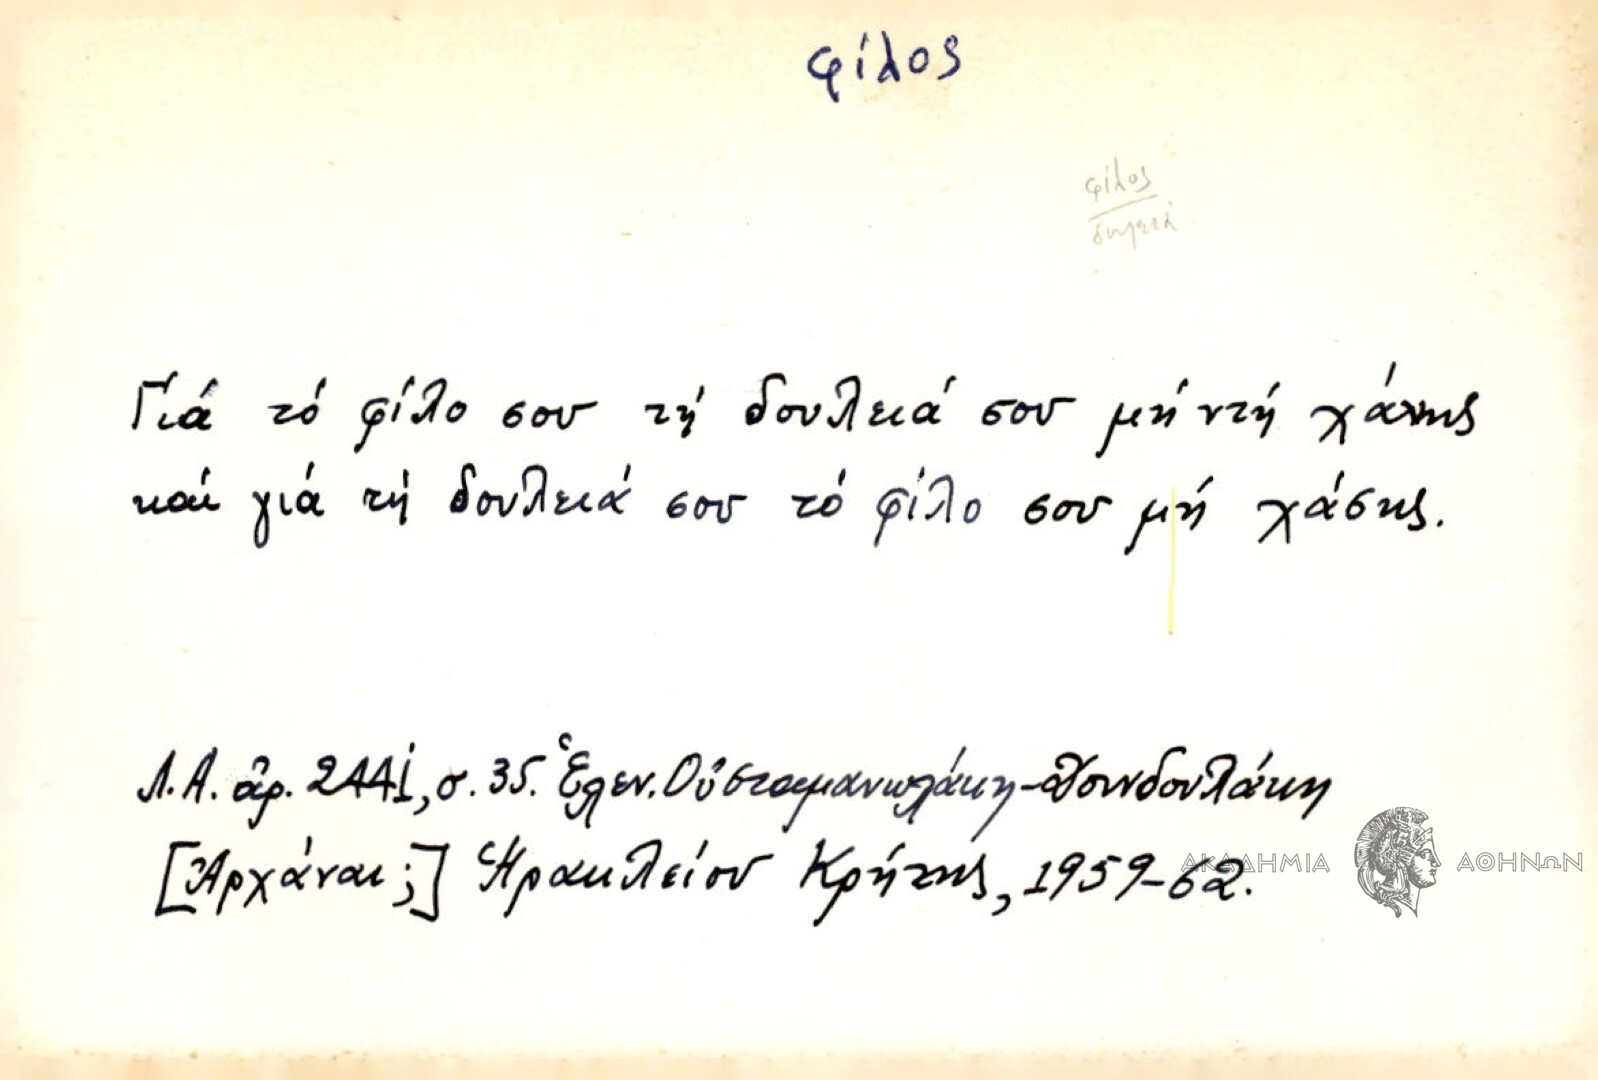 φίλος
φίλος
δουλειά
Γιά τό φίλο σου τή δουλειά σου μή ντή χάνης
καί γιά τή δουλειά σου τό φίλο σου μή χάσης.
Λ.Α. ἀρ. 2441, σ. 35. Ἑλεν. Οὐσταμανωλάκη-
[Ἀρχάναι;] Ἡρακλείου Κρήτης, 1959-62.
ΑΚΑΔΗΜΙΑ ΑΘΗΝΩΝ